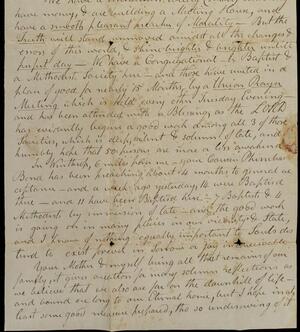 have money, & are building a Meeting House, and
have a smooth pleasant preacher of Morality — But the
Truth will stand unmoved amidst all the changes &
errors of this world, & shine brighter & brighter until the
perfect day — We have a Congregational — a Baptist &
a Methodist Society here — and those have united in a
plan of good for nearly 15 months, by a Union Prayer
Meeting which is held every other Tuesday Evening —
and has been attended with a Blessing, as the LORD
has evidently begun a good work among all 3 of these
Societies, which is deep, silent & solemn of late, and
humbly hope that 20 persons are more or less awakened
In Winthrop, 6 miles from me — your Cousin Phinehas
Bond has been preaching about 4 months to general ac
ceptance — and a week ago yesterday, 14 were Baptised
there — and 11 have been Baptised here — 7 Baptist & 4
Methodist by immersion of late — and the good work
is going on in many places in our vicinity & State,
and I know of nothing equally important to Souls des
tined to exist forever in Sorrow or Joy
Your Mother & myself being all that remains of our
family, it gives occasion for many solemn reflections as
we believe that we also are far on the downhill of life —
and bound ere long to our Eternal home, but I hope in at
least some good measure prepared, tho so undeserving of it